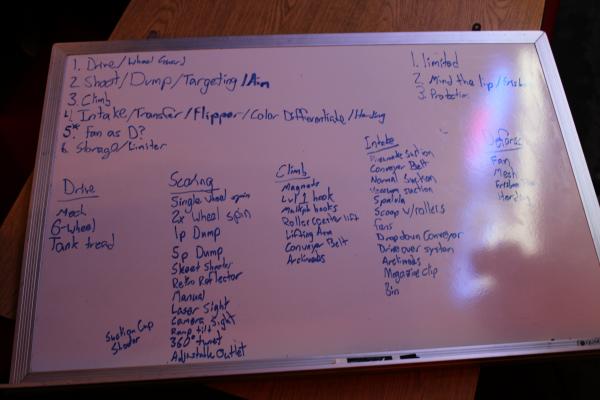 1. Drive/Wheel Guard
2. Shoot/Dump/Targeting/Aim
3. Climb
4. Intake/Transfer/Flipper/Color Differentiate/Herding
5.* Fan as D?
6. Storage/Limiter
1. limited
2. Mind the lip/
3. Protection
Drive
Mech
6-Wheel
Tank tread
Scoring
Single wheel spin
2x Wheel spin
1p Dump
5p Dump
Skeet Shooter
Retro Reflector
Manual
Laser Sight
Camera Sight
Ramp tilt
360° turret
Adjustable Outlet
Suction Cup
Shooter
Climb
Magnets
Lvl 1 hook
Multiple hooks
Roller coaster lift
Lifting Arm
Conveyor Belt
Arctimods
Intake
Pneumatic Suction
Conveyor Belt
Normal Suction
Vacuum suction
Spatula
Scoop w/rollers
Fans
Drop down Conveyor
Drive over system
Arctimods
Magazine clip
Bin
Defense
Fan
Mesh
Herding